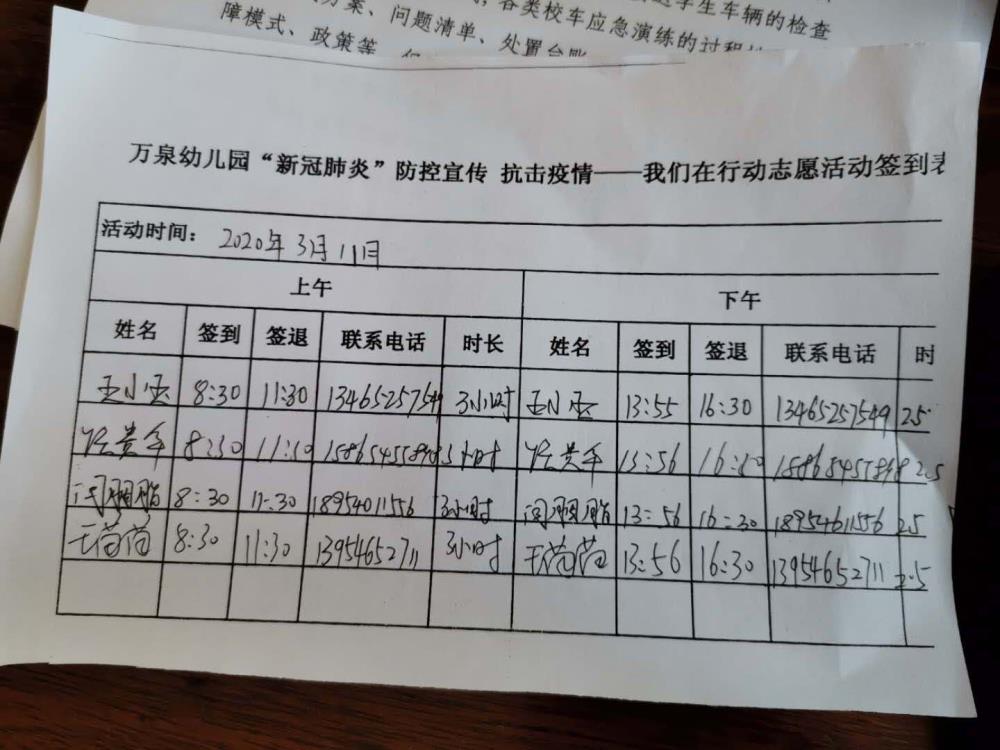 障模式、政策等
问题清单、处置台账
各类校车应急演练的过程
学生车辆的检查
万泉幼儿园“新冠肺炎”防控宣传 抗击疫情——我们在行动志愿活动签到表
活动时间： 2020年3月11日
上午 下午
姓名 签到 签退 联系电话 时长 姓名 签到 签退 联系电话 时
王小玉 8:30 11:30 13465257549 3小时 王小玉 13:55 16:30 13465257549 2.5
8:30 11:30 3小时 13:56 16:30 2.5
闫胭脂 8:30 11:30 3小时 闫胭脂 13:56 16:30 18954611556 2.5
8:30 11:30 13954652711 3小时 13:56 16:30 13954652711 2.5